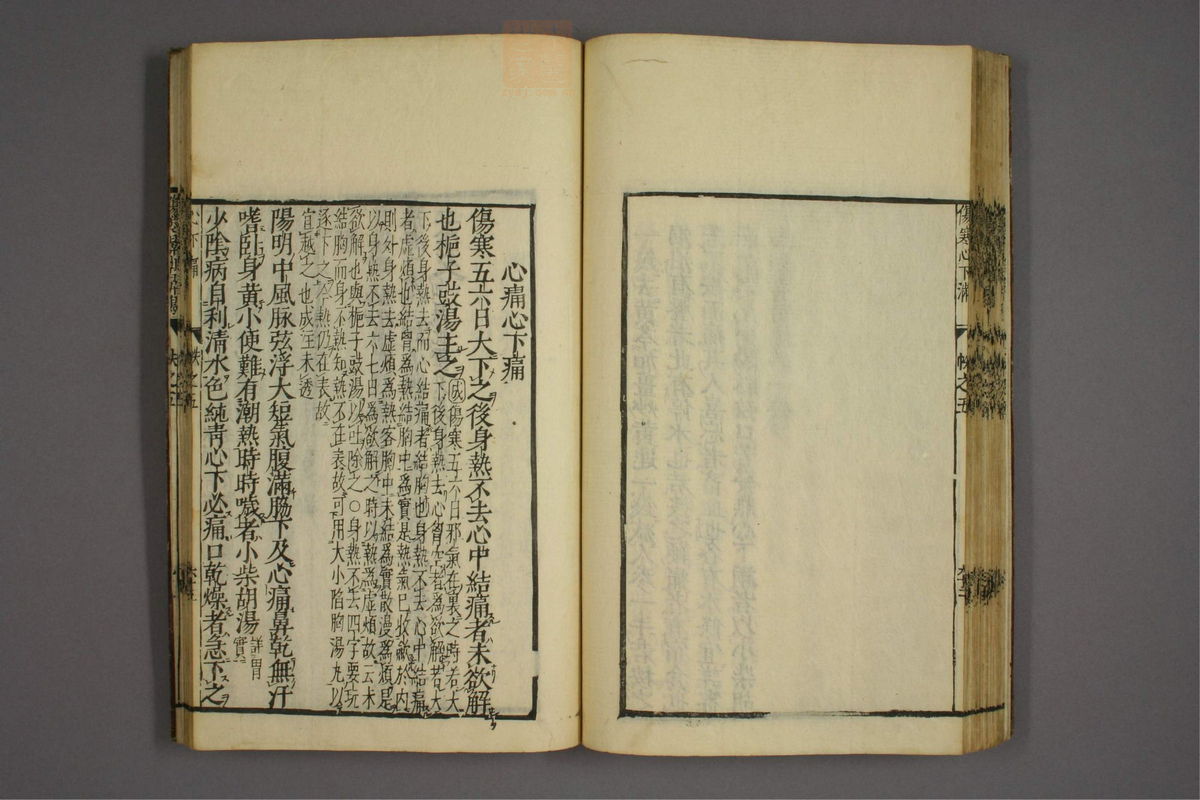 傷寒心下滿
帙之五
心痛心下痛
傷寒五六日大下之後身熱不去心中結痛者未欲解
也梔子豉湯主之
成傷寒五六日邪氣在裏之時若大
下後身熱去心胷空者為欲解若大
下後身熱去而心結痛者結胸也身熱不去心中結痛
者虛煩也結胷為熱結胸中為實是熱氣已收斂於內
則外身熱去虛煩為熱客胸中未結為實散漫為煩是
以身熱不去六七日為欲解之時以熱為虛煩故云未
欲解也與梔子豉湯以吐除之○身熱不去四字要玩
結胸而身不熱知熱不在表故可用大小陷胸湯丸以
逐下之今熱仍在表故
宣越之也成主未透
陽明中風脉弦浮大短氣腹滿脇下及心痛鼻乾無汗
嗜卧身黃小便難有潮熱時時噦者小柴胡湯
詳胃
實
少陰病自利清水色純青心下必痛口乾燥者急下之
心下痛
帙之五